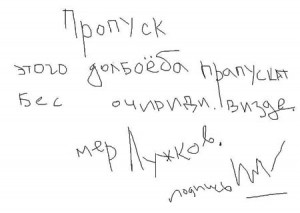 Пропуск
этого долбоёба прапускат
бес очириди. визде.
мер Лужков.
подпись